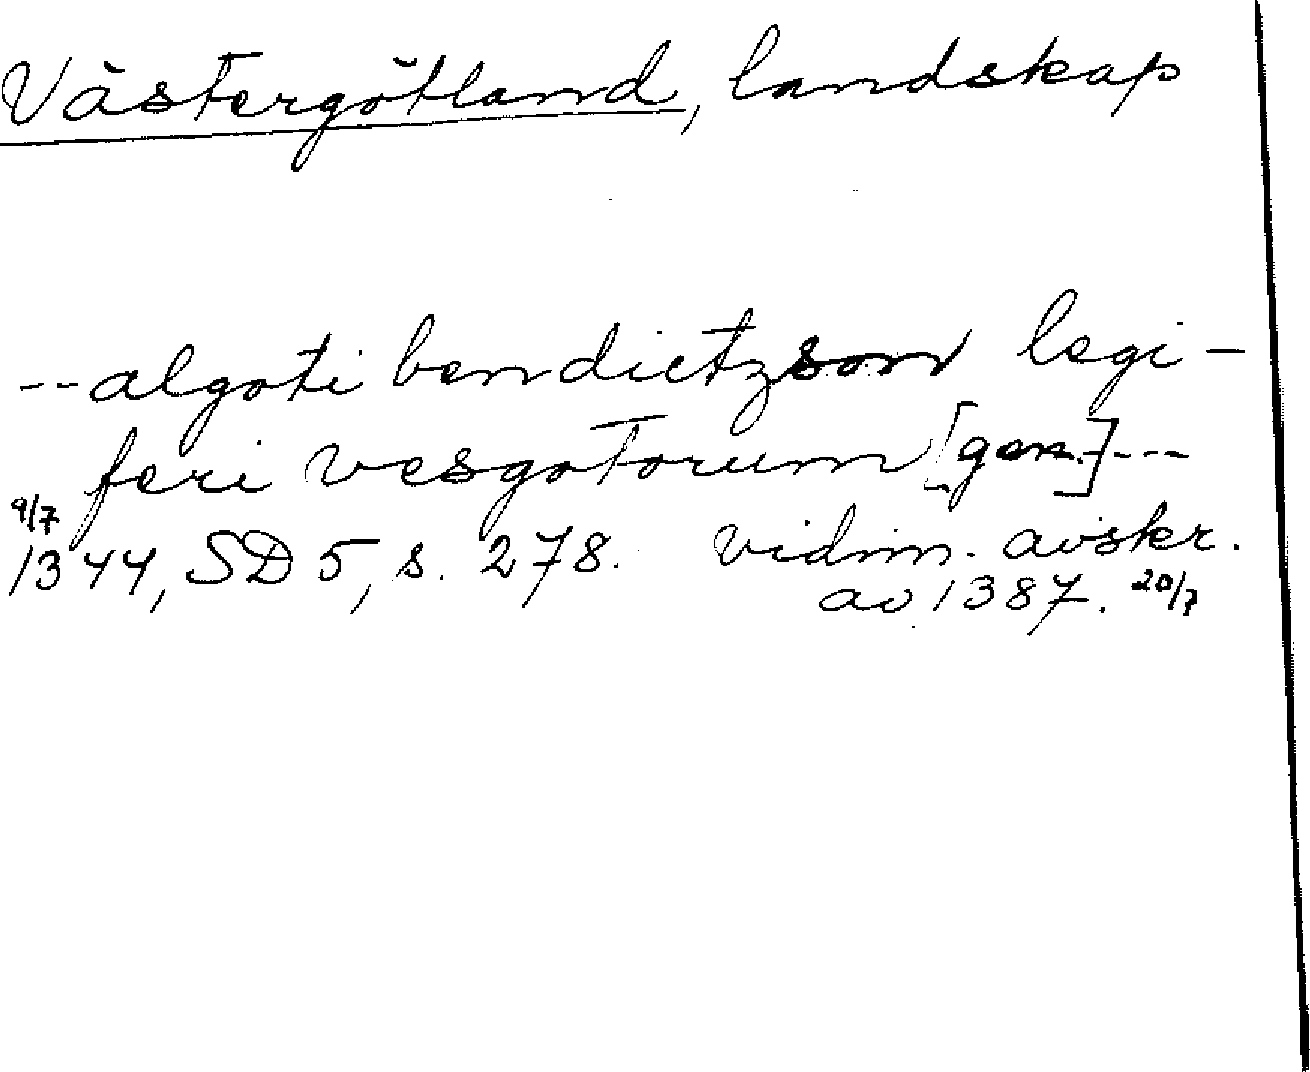 Västergötland, landskap
--algoti bendictzson legi-
feri vesgotorum [gen.]---
9/7
1344, SD 5, s. 278. vidim. avskr.
av 1387. 20/7